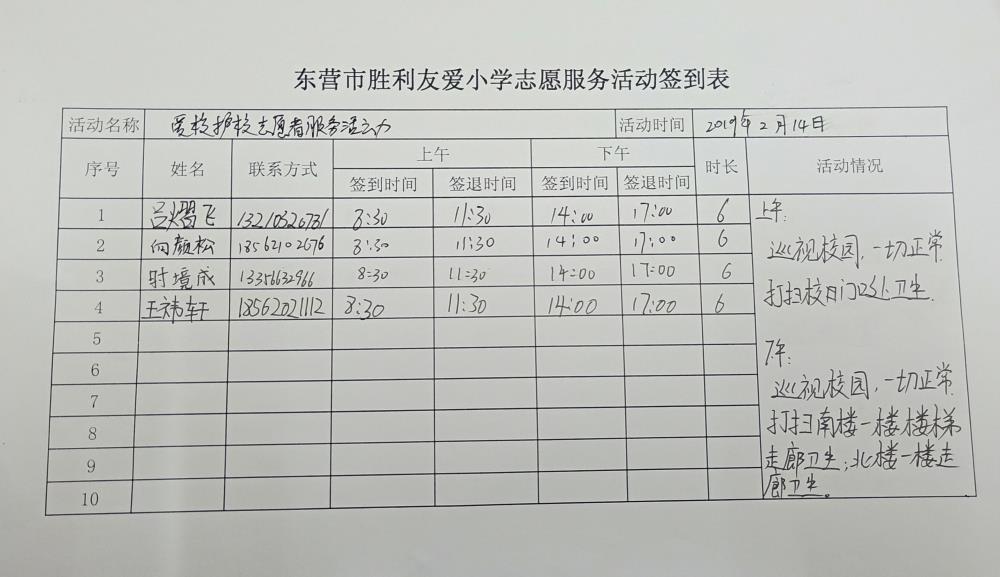 东营市胜利友爱小学志愿服务活动签到表
活动名称 爱校护校志愿者服务活动 活动时间 2019年2月14日
序号 姓名 联系方式 上午 下午 时长 活动情况
签到时间 签退时间 签到时间 签退时间
1 吕熠飞 13210326731 8:30 11:30 14:00 17:00 6
2 向颜松 18562102676 8:30 11:30 14:00 17:00 6
3 境成 13356632966 8:30 11:30 14:00 17:00 6
4 王祎轩 18562021112 8:30 11:30 14:00 17:00 6
5
6
7
8
9
10
上午:
巡视校园,一切正常
打扫校门口卫生.
下午:
巡视校园,一切正常
打扫南楼一楼楼梯
走廊卫生;北楼一楼走
廊卫生。